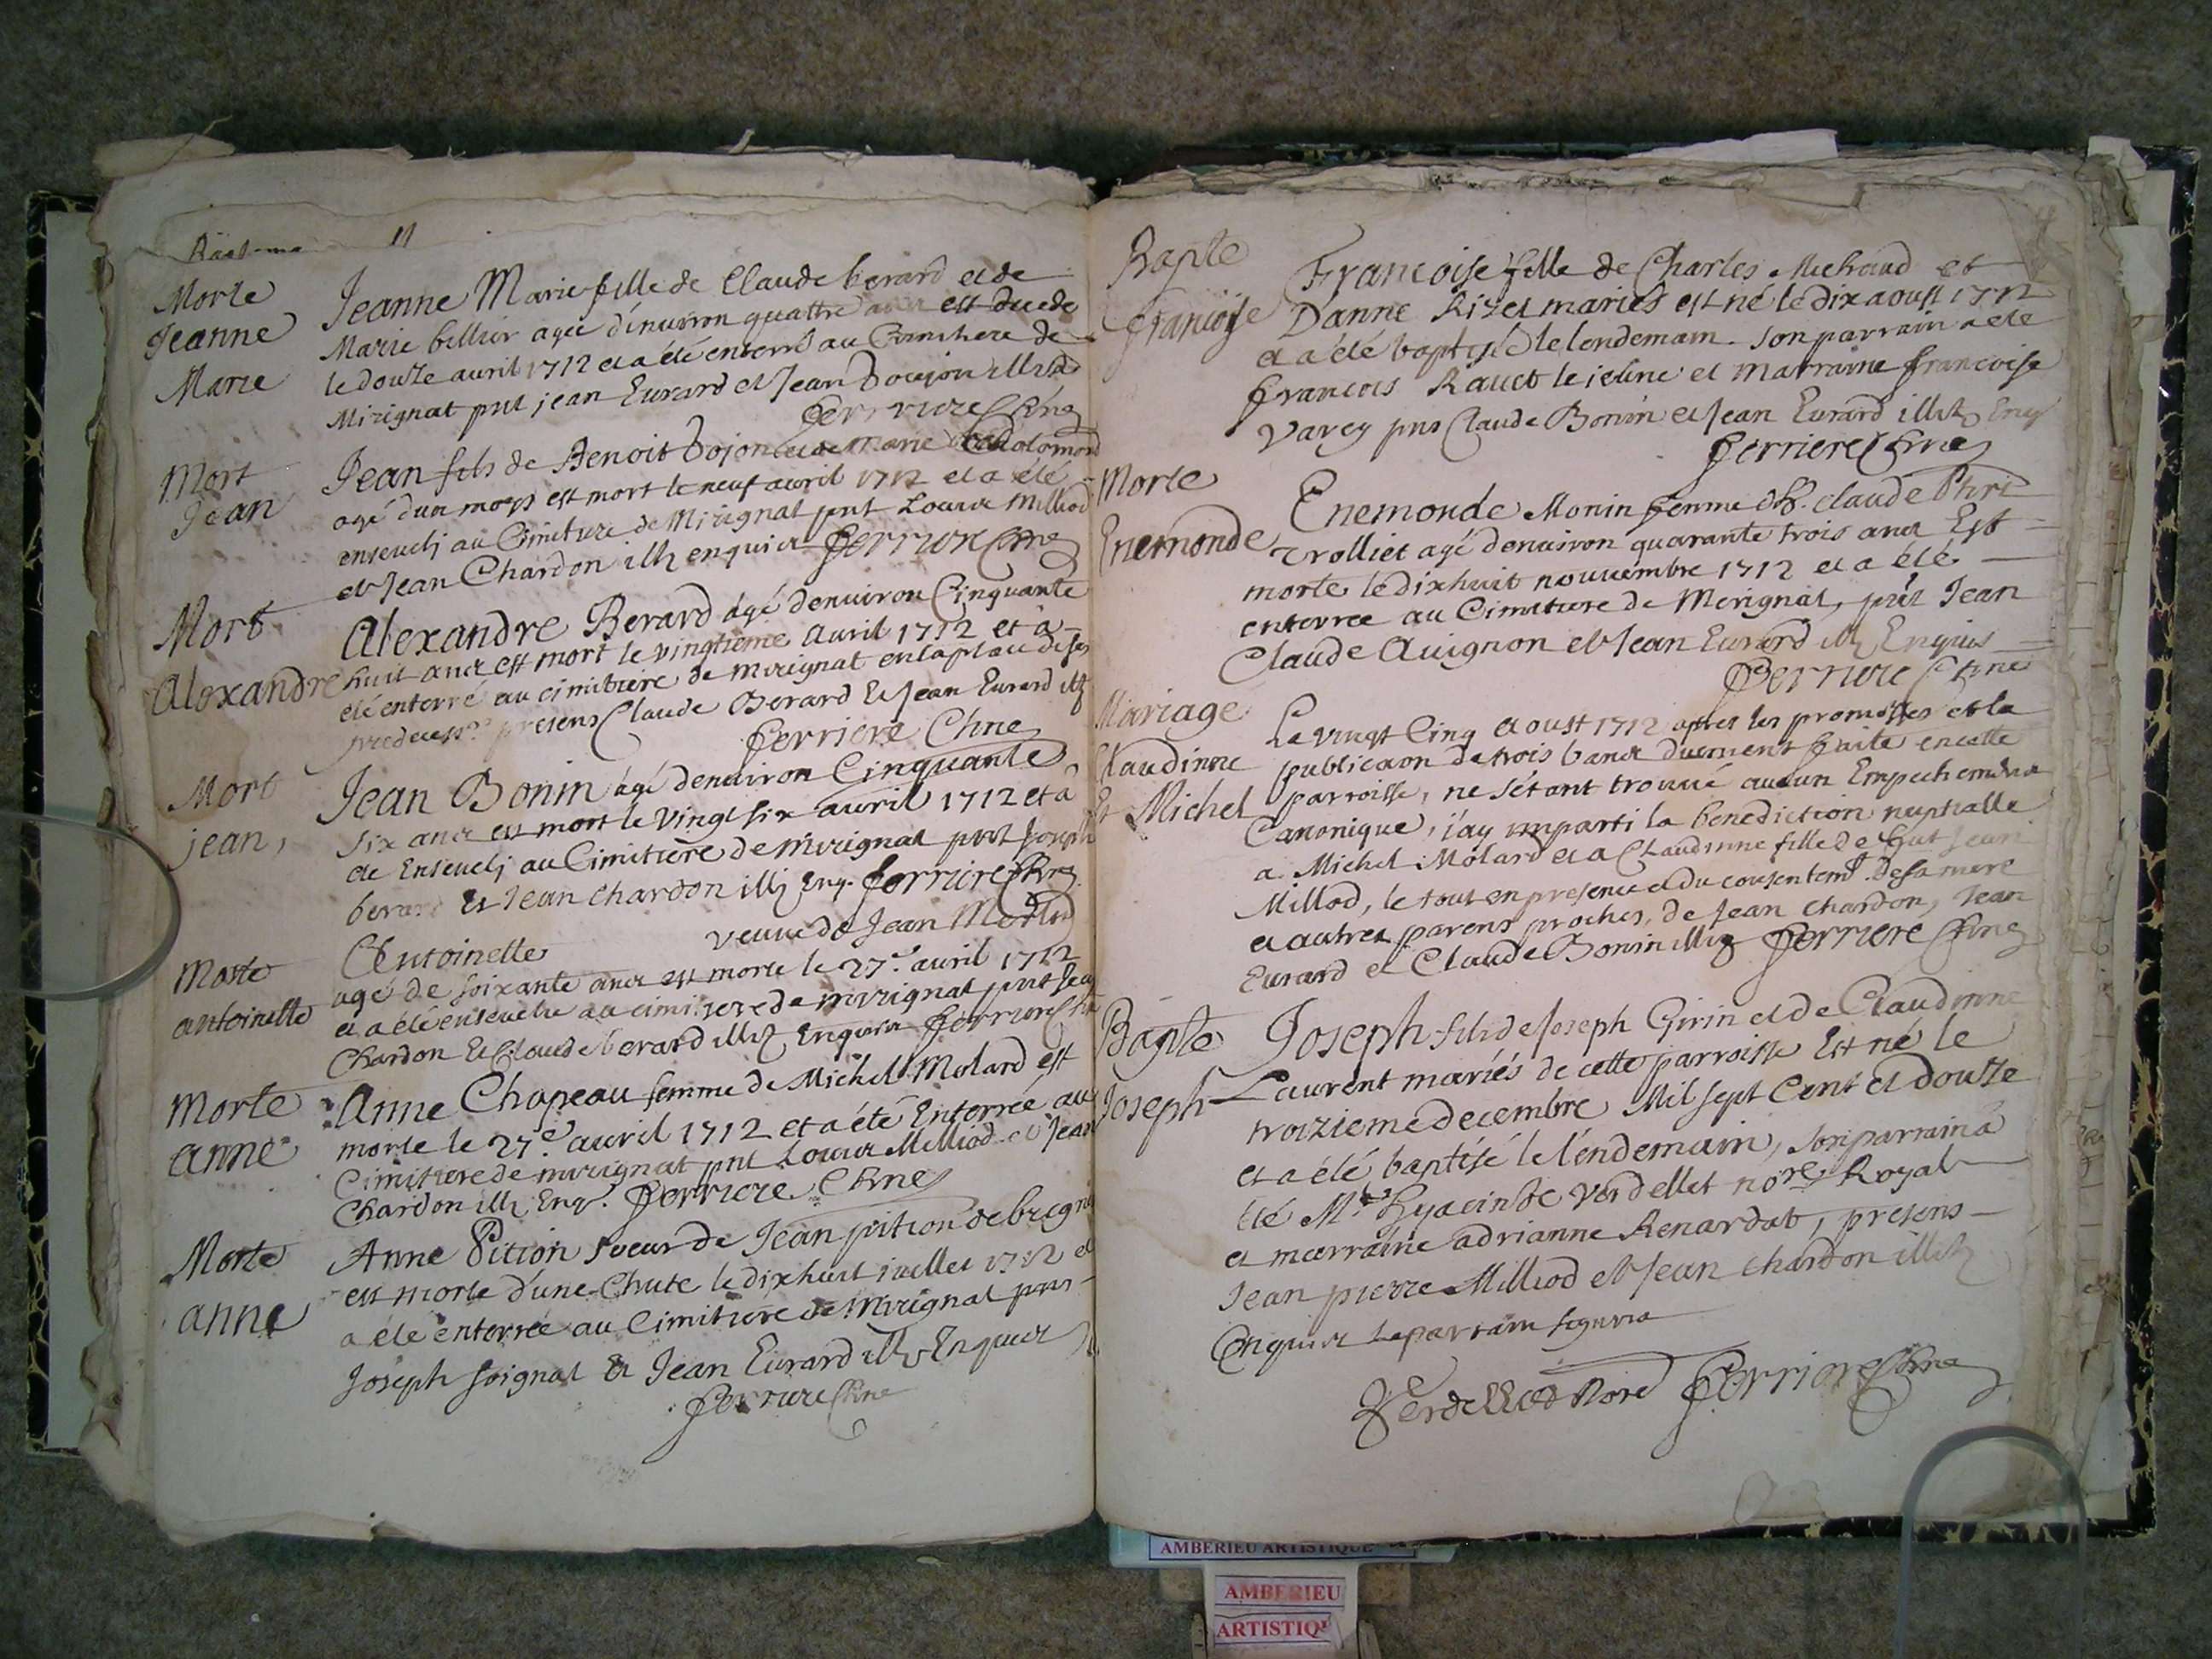 Morte
Jeanne
Marie
Jeanne Marie fille de Claude berard et de
Marie billier agée d'enuiron quattre ans est
le douze auril 1712 et a été enterré au de
Mirignat pnt jean Eurard et Jean
Ferriere
Mort
Jean
Jean fils de Benoit et de Marie
agé d'un moys est mort le neuf auril 1712 et a été
enseueli au Cimitiere de Mirignat pnt Milliod
et Jean Chardon illz enquis Ferriere
Mort
Alexandre
Alexandre Berard agé denuiron Cinquante
huit ans est mort le vingtieme auril 1712 et a
été enterré au cimitiere de mirignat en la place de ses
presens Claude Berard et Jean Eurard
Ferriere
Mort
jean,
Jean Bonin agé denuiron Cinquante
six ans est mort le vingt six auril 1712 et a
été Enseueli au Cimitiere de mirignat pnt Joseph
berard et Jean chardon illz Enq. Ferriere
Morte
antoinette
Antoinette veuue de Jean
agé de soixante ans est morte le 27e. auril 1712
et a été enseuelie au cimitiere de mirignat pnt Jean
Chardon et Claude berard illz Enquis Ferriere
Morte
anne
Anne Chapeau femme de Michel Molard est
morte le 27e. auril 1712 et a été Enterrée au
Cimitiere de mirignat pnt Milliod et Jean
Chardon illz Enq. Ferriere
Morte
anne
Anne Pition soeur de Jean pition de
est morte d'une Chute le dixhuit iuillet 1712 et
a été enterrée au Cimitiere de Mirignat pns
Joseph soignat et Jean Eurard illz Enquis
Ferriere
Bapte
françoise
Francoise fille de Charles Michaud et
D'anne mariés est né le dix aoust 1712
et a été baptisée le lendemain. son parrain a été
francois Rauet le ieune et marraine francoise
Varey pns Claude Bonin et Jean Eurard illz Enq
Ferriere
Morte
Enemonde
Enemonde Monin femme d'h. claude
Trolliet agé denuiron quarante trois ans Est
morte le dixhuit nouuembre 1712 et a été
enterree au Cimitiere de Merignat, pnt Jean
Claude Auignon et Jean Eurard illz Enquis
Ferriere
Mariage
Claudinne
Et Michel
Le vingt Cinq aoust 1712 apres les promesses et la
publicaon de trois bans duement faite en cette
parroisse, ne s'étant trouué aucun Empechement
Canonique, i'ay imparti la benediction nuptialle
a Michel Molard et a Claudinne fille de feut Jean
Milliod, le tout en presence et du consentemt. de sa mere
et autres parens proches, de Jean chardon, Jean
Eurard et Claude Bonin illz Ferriere
Bapte
Joseph
Joseph fils de Joseph Girin et de Claudinne
Laurent mariés de cette parroisse Est né le
troizieme decembre Mil sept Cent et douze
et a été baptisé le lendemain, son parrain a
été Mre Hyacinthe Verdellet nore. Royal
et marraine adrianne Renardat, presens
Jean pierre Milliod et Jean chardon illz
Enquis Le parrain signera
Verdellet Nore Ferriere
AMBERIEU ARTISTIQUE
AMBERIEU
ARTISTIQU